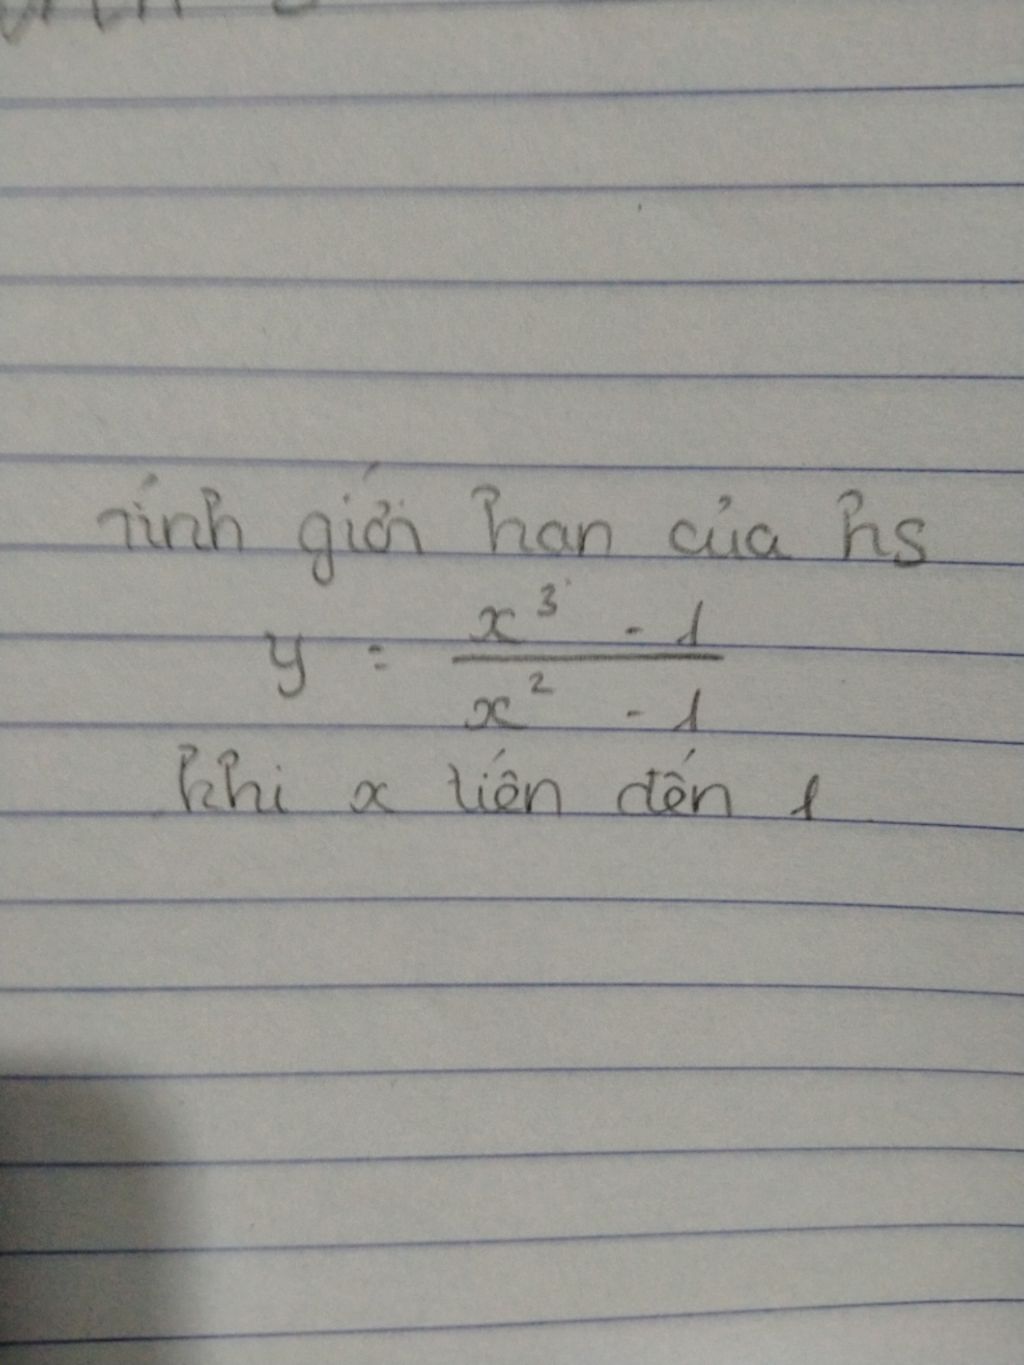 Tính giới han của hs
y = \frac{x^3 - 1}{x^2 - 1}
khi x tiến đến 1